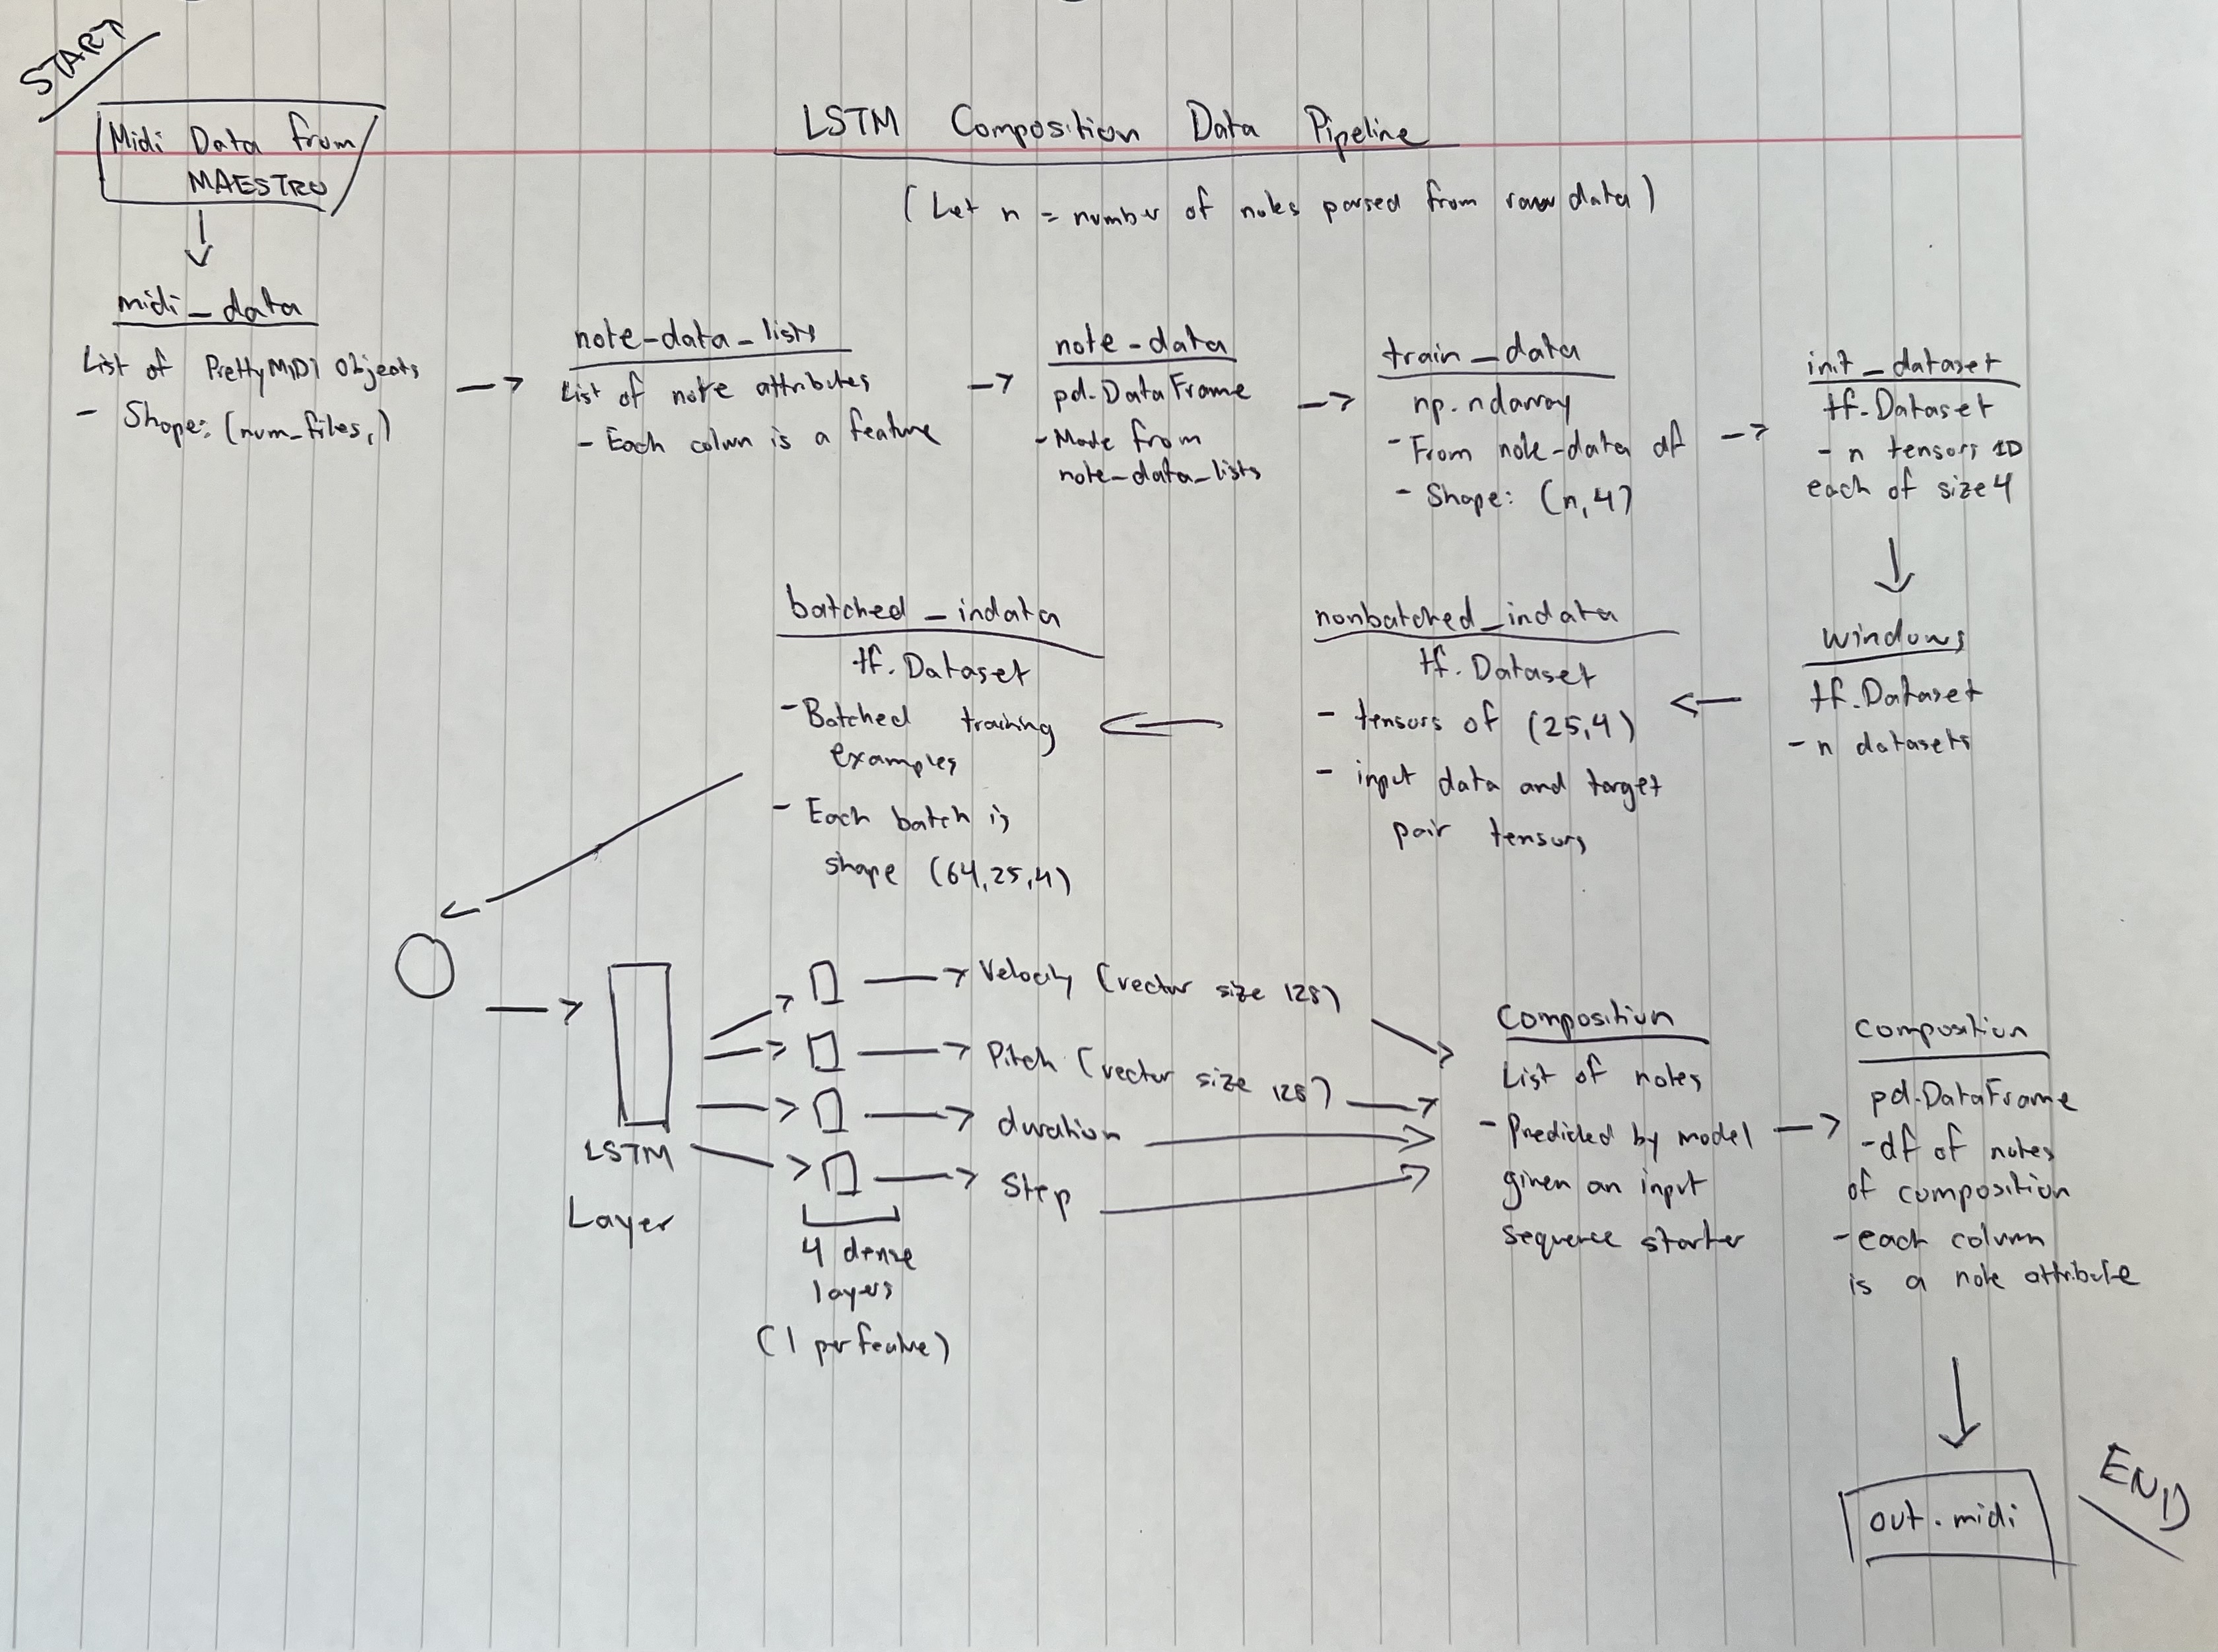 START
Midi Data from
MAESTRO
LSTM Composition Data Pipeline
(Let n = number of notes parsed from raw data)
midi_data
List of PrettyMIDI Objects
- Shape: (num_files,)
note-data_lists
List of note attributes
- Each column is a feature
note-data
pd.DataFrame
- Made from
note-data_lists
train_data
np.ndarray
- From note-data df
- Shape: (n,4)
init_dataset
tf.Dataset
- n tensors 1D
each of size 4
windows
tf.Dataset
- n datasets
nonbatched_indata
tf.Dataset
- tensors of (25,4)
- input data and target
pair tensors
batched_indata
tf.Dataset
- Batched training
examples
- Each batch is
shape (64,25,4)
LSTM
Layer
4 dense
layers
(1 per feature)
Velocity (vector size 128)
Pitch (vector size 128)
duration
Step
Composition
List of notes
- Predicted by model
given an input
sequence starter
composition
pd.DataFrame
- df of notes
of composition
- each column
is a note attribute
out.midi
END